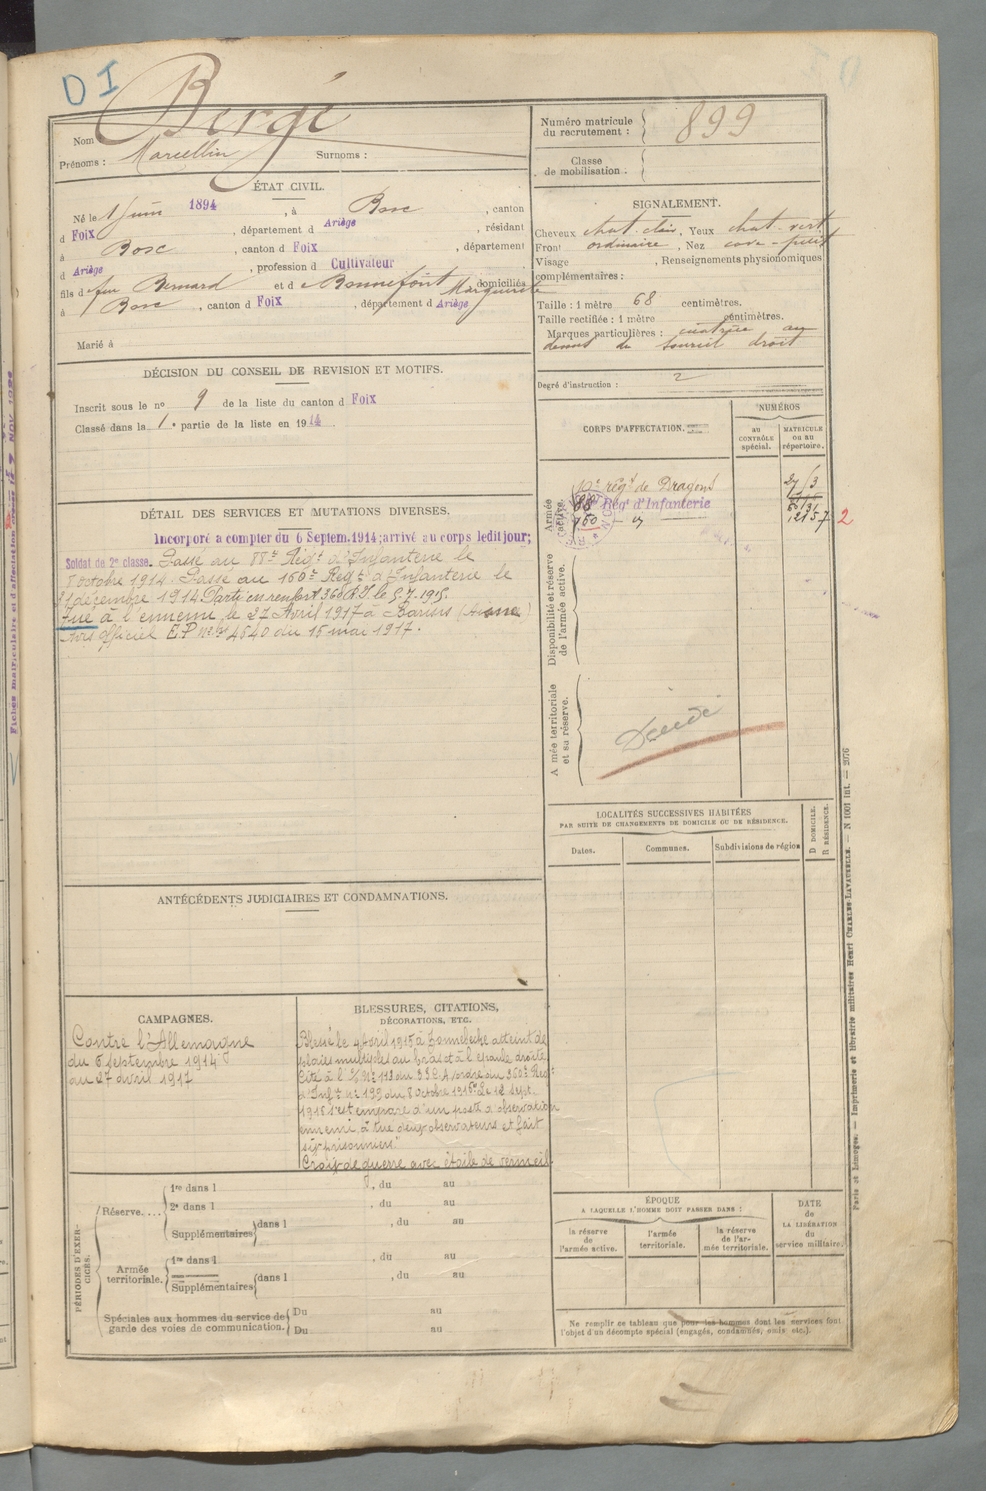 DI
Nom Bergé
Prénoms : Marcellin Surnoms :
Numéro matricule du recrutement : 899
Classe de mobilisation .
ÉTAT CIVIL.
Né le 1 Juin 1894 , à Bosc , canton
d Foix , département d Ariège , résidant
à Bosc , canton d Foix , département
d Ariège , profession d Cultivateur
fils d e feu Bernard et d e Bonnefont Marguerite domiciliés
à Bosc , canton d Foix , département d Ariège
Marié à
SIGNALEMENT.
Cheveux chat. clair , Yeux chat. vert
Front ordinaire , Nez cave - petit
Visage , Renseignements physionomiques
complémentaires :
Taille : 1 mètre 68 centimètres.
Taille rectifiée : 1 mètre centimètres.
Marques particulières : cicatrice au
dessus du sourcil droit
Degré d'instruction : 2
DÉCISION DU CONSEIL DE REVISION ET MOTIFS.
Inscrit sous le no 9 de la liste du canton d Foix
Classé dans la 1 e partie de la liste en 19 14
DÉTAIL DES SERVICES ET MUTATIONS DIVERSES.
Incorporé a compter du 6 Septem. 1914; arrivé au corps ledit jour;
Soldat de 2e classe. Passé au 88e Régt d'Infanterie le
8 octobre 1914. Passé au 160e Regt d'Infanterie le
11 décembre 1914. Parti en renfort 360 R.I. le 5.7.1915
Tué à l'ennemi, le 27 Avril 1917 à (Aisne)
Avis officiel E.P. 4540 du 15 mai 1917.
CORPS D'AFFECTATION.
NUMÉROS
au CONTRÔLE spécial.
MATRICULE ou au répertoire.
Armée active.
10e régt de Dragons
88 Régt d'Infanterie
160 - d
12157 2
Disponibilité et réserve de l'armée active.
A mée territoriale et sa réserve.
Décédé
LOCALITÉS SUCCESSIVES HABITÉES
PAR SUITE DE CHANGEMENTS DE DOMICILE OU DE RÉSIDENCE.
Dates.
Communes.
Subdivisions de région
D DOMICILE.
R RÉSIDENCE.
ANTÉCÉDENTS JUDICIAIRES ET CONDAMNATIONS.
CAMPAGNES.
Contre l'Allemagne
du 6 septembre 1914
au 27 avril 1917
BLESSURES, CITATIONS,
DÉCORATIONS, ETC.
Blessé le 4 Avril 1915 à Zonnebecke atteint de
plaies multiples au bras et à l'épaule droite
Cité à l' No 113 du 33 C.A. ordre du 360e Regt
d'Inft no 193 du 8 octobre 1915 "Le 12 sept.
1915 s'est emparé d'un poste d'observation
ennemi, a tué deux observateurs et fait
six prisonniers"
Croix de guerre avec étoile de vermeil
PÉRIODES D'EXERCICES.
Réserve....
1re dans l , du au
2e dans l , du au
Supplémentaires dans l , du au
Armée territoriale.
1re dans l , du au
Supplémentaires dans l , du au
Spéciales aux hommes du service de
garde des voies de communication.
Du au
Du au
ÉPOQUE
A LAQUELLE L'HOMME DOIT PASSER DANS :
la réserve de l'armée active.
l'armée territoriale.
la réserve de l'armée territoriale.
DATE de LA LIBÉRATION du service militaire.
Ne remplir ce tableau que pour les hommes dont les services font
l'objet d'un décompte spécial (engagés, condamnés, omis etc.).
Paris et Limoges. — Imprimerie et librairie militaires Henri CHARLES-LAVAUZELLE. — N 1001 int. — 2076